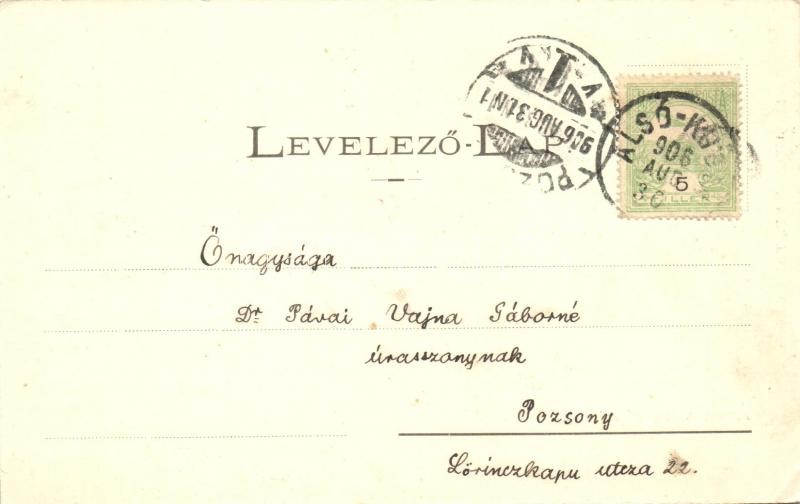 LEVELEZŐ-LAP
906 AUG 31
ALSÓ-
906
AUG
30
5
Őnagysága
Dr Pávai Vajna Gáborné
úrasszonynak
Pozsony
Lőrinczkapu utcza 22.